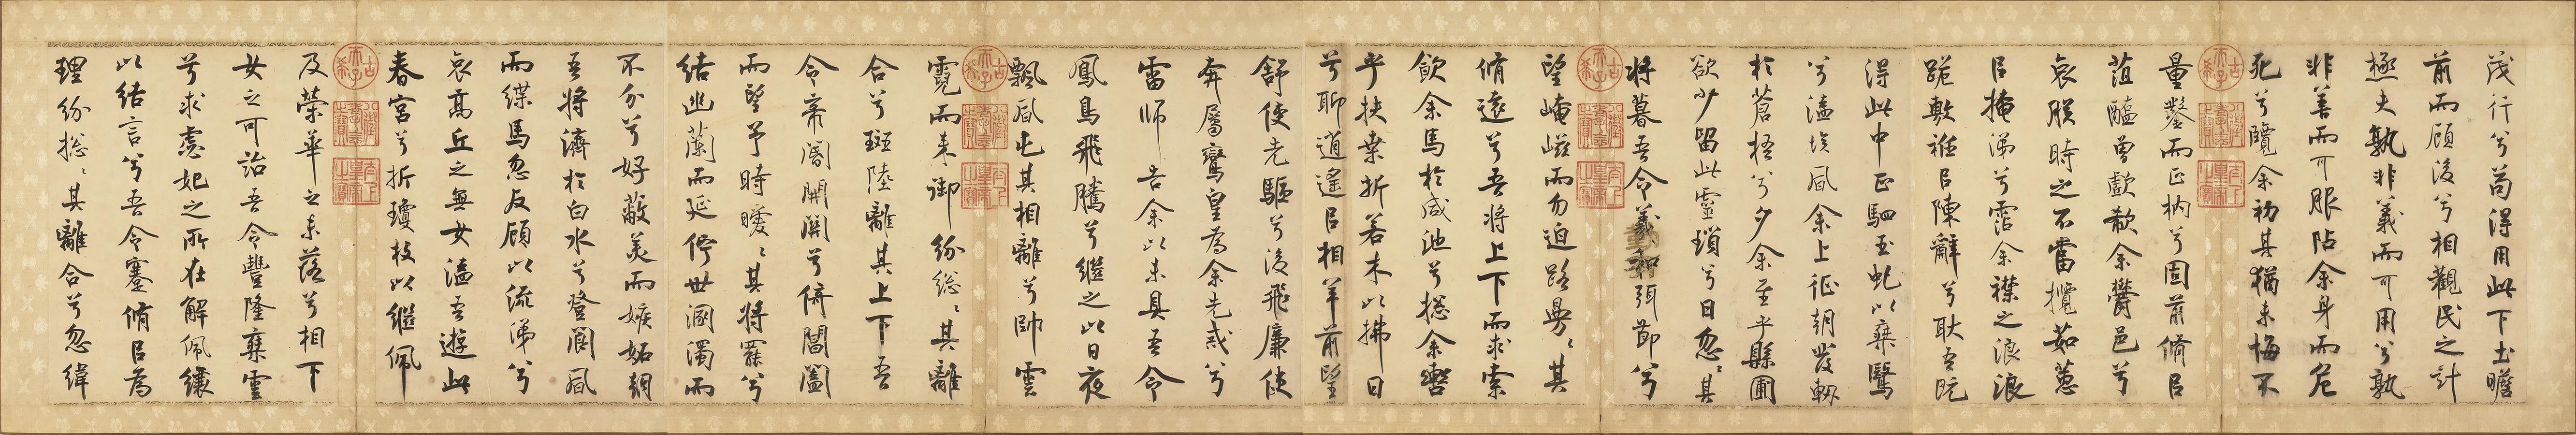 茂行兮苟得用此下土瞻
前而顧後兮相觀民之計
極夫孰非義而可用兮孰
非善而可服阽余身而危
死兮覽余初其猶未悔不
量鑿而正枘兮固前脩㠯
菹醢曾歔欷余鬱邑兮
哀朕時之不當攬茹蕙
㠯掩涕兮霑余襟之浪浪
跪敷衽㠯陳辭兮耿吾既
得此中正駟玉虬以椉鷖
兮溘埃風余上征朝發軔
於蒼梧兮夕余至乎縣圃
欲少留此靈瑣兮日忽〻其
將暮吾令羲和弭節兮
望崦嵫而勿迫路曼〻其
脩遠兮吾將上下而求索
飲余馬於咸池兮揔余轡
乎扶桑折若木以拂日
兮聊逍遙㠯相羊前望
舒使先驅兮後飛廉使
奔屬鸞皇為余先戒兮
雷師告余以未具吾令
鳳鳥飛騰兮繼之以日夜
飄風屯其相離兮帥雲
霓而來御紛総〻其離
合兮斑陸離其上下吾
令帝閽開關兮倚閶闔
而望予時曖〻其將罷兮
結幽蘭而延佇世溷濁而
不分兮好蔽美而嫉妬朝
吾將濟於白水兮登閬風
而緤馬忽反顧以流涕兮
哀高丘之無女溘吾遊此
春宮兮折瓊枝以繼佩
及榮華之未落兮相下
女之可詒吾令豐隆椉雲
兮求虙妃之所在解佩纕
以結言兮吾令蹇脩㠯為
理紛揔〻其離合兮忽緯
古希天子
古希天子
古希天子
古希天子